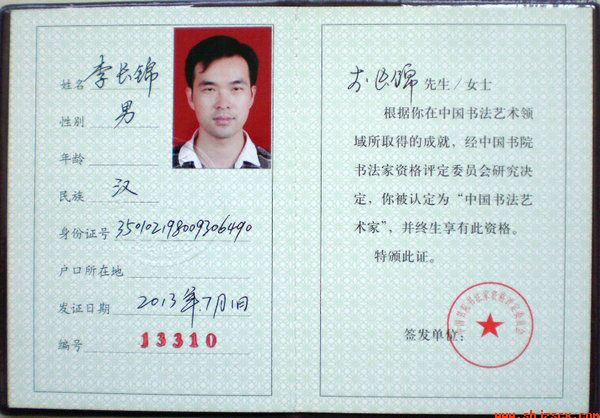 姓名 李长锦
性别 男
年龄
民族 汉
身份证号 350102198009306490
户口所在地
发证日期 2013年7月1日
编号 13310
李长锦 先生/女士
根据你在中国书法艺术领
域所取得的成就，经中国书院
书法家资格评定委员会研究决
定，你被认定为“中国书法艺
术家”，并终生享有此资格。
特颁此证。
签发单位：
中国书院书法家资格评定委员会